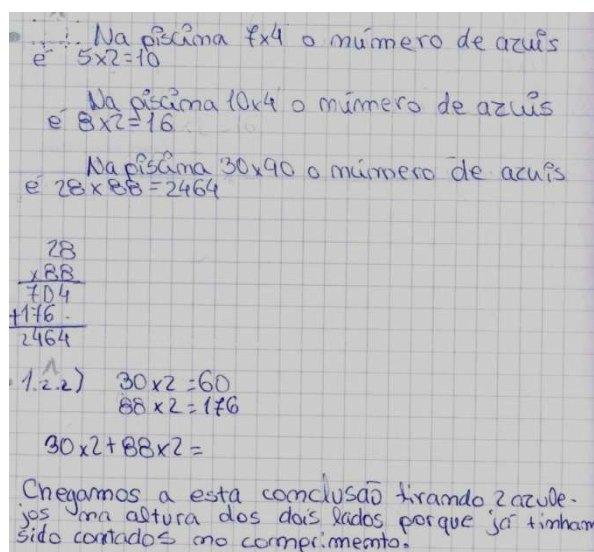 Na piscina 7x4 o número de azuis
é 5x2=10
Na piscina 10x4 o número de azuis
é 8x2=16
Na piscina 30x90 o número de azuis
é 28x88=2464
28
x88
704
+176.
2464
1.2.2) 30x2=60
88x2=176
30x2+88x2=
Chegamos a esta comclusão tirando 2 azule-
jos na altura dos dois lados porque já tinham
sido contados no comprimento.